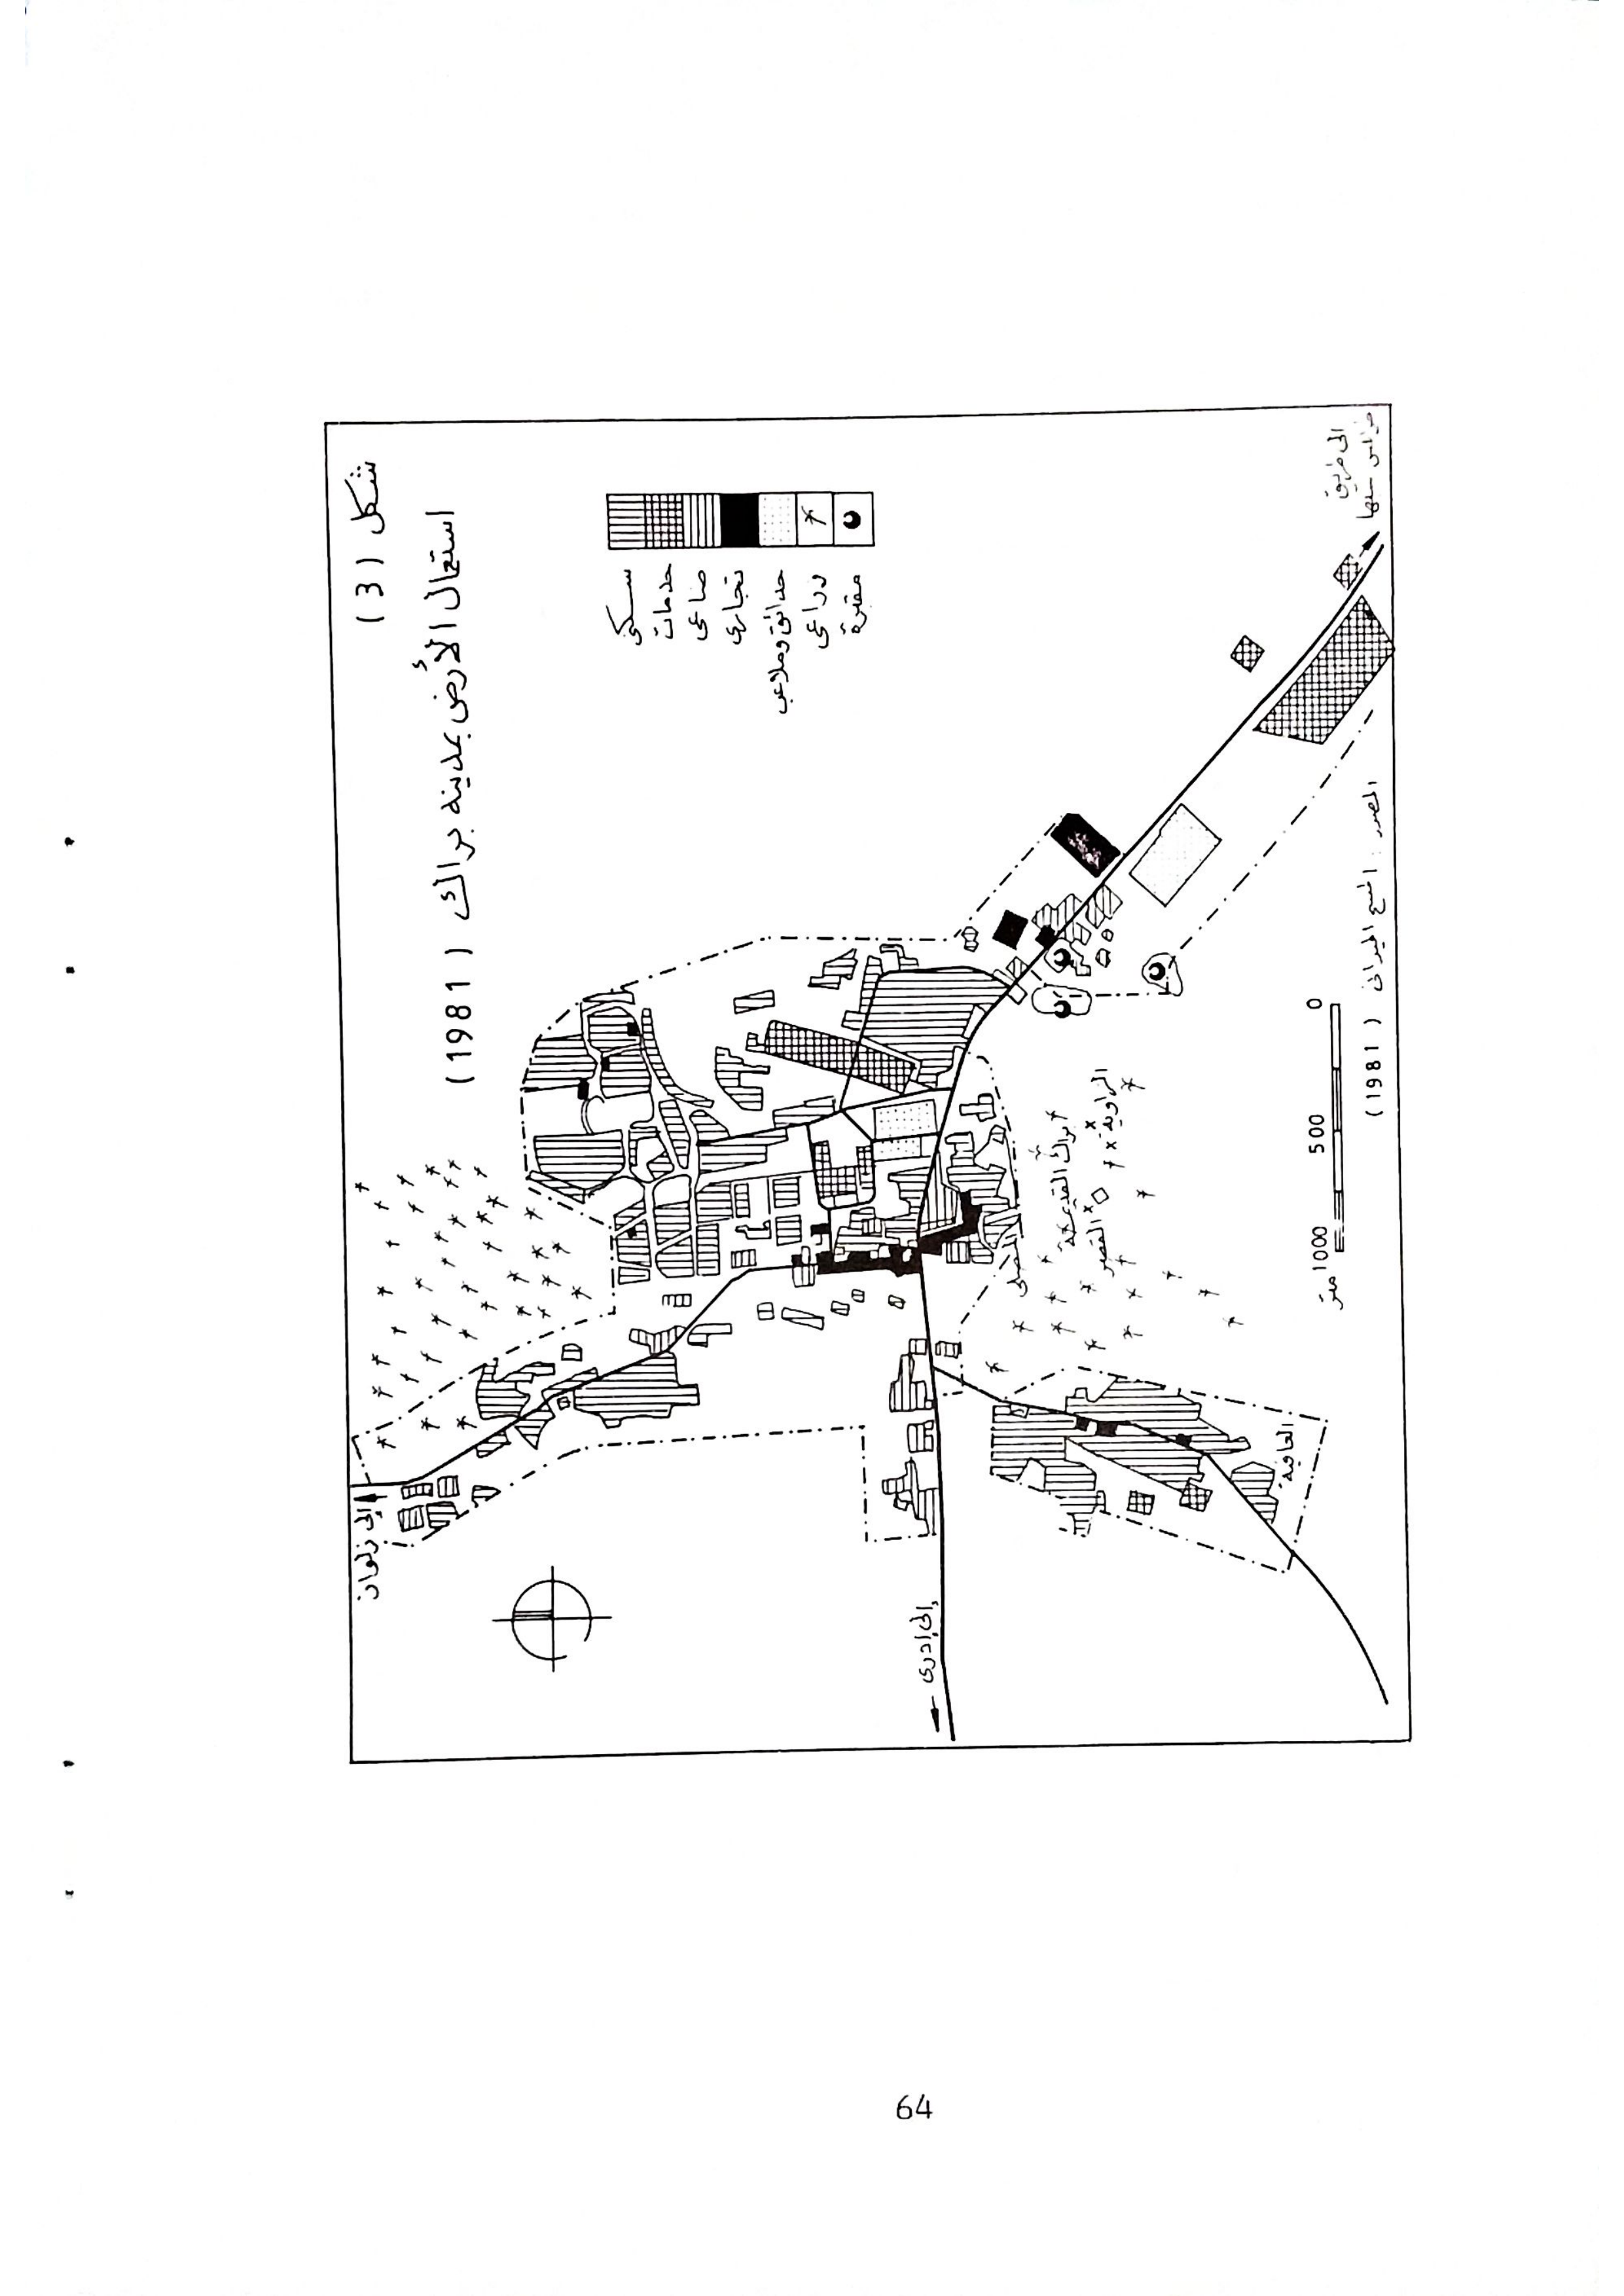 شكل (3)
استعمال الأرض بمدينة براك (1981)
سكني
خدمات
صناعي
تجاري
حدائق وملاعب
زراعي
مقبرة
إلى طريق
إلى زلواز
إلى إدري
براك القديمة
الزاوية
القصير
العافية
0 500 1000 متر
المصدر: المسح الميداني (1981)
64